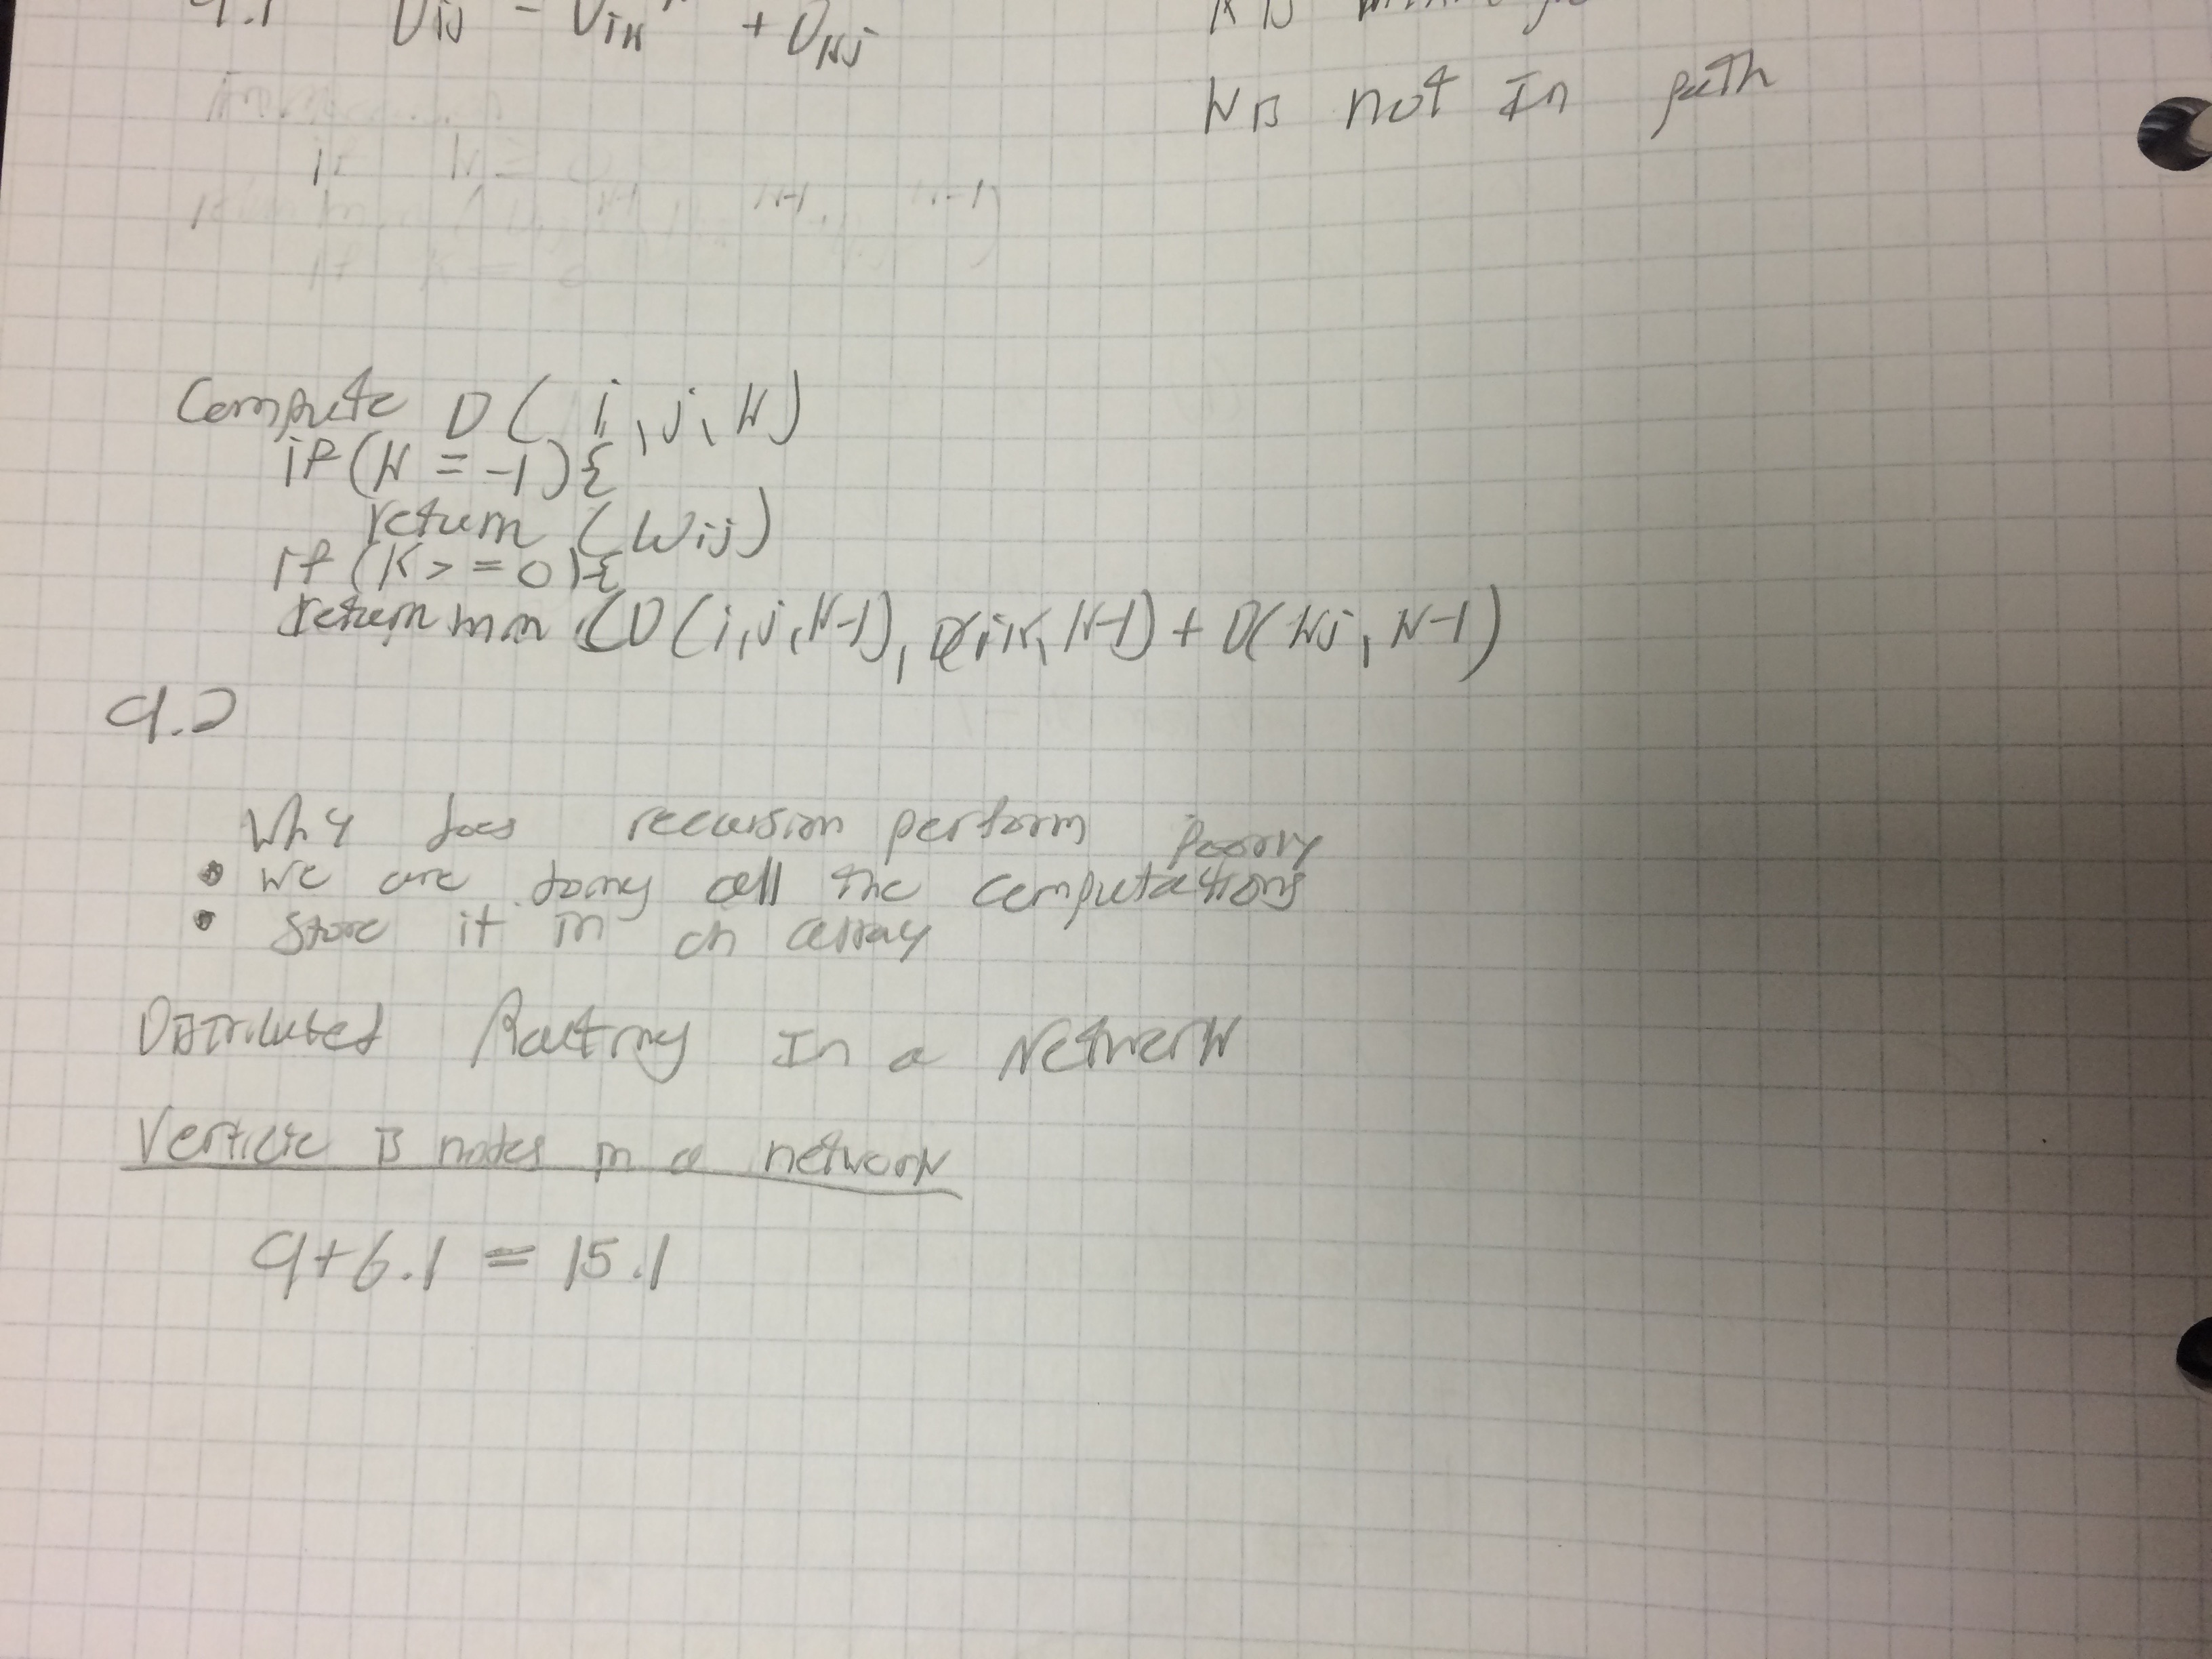 9.1 Dij = Dik + Dkj
k is
k is not in path
if k = 0
k-1, k-1)
if k = 0
Compute D(i, j, k)
if(k = -1){
return (Wij)
if(k >= 0){
return min (D(i,j,k-1), D(ik, k-1) + D(kj, k-1)
9.2
Why does recursion perform poorly
• We are doing all the computations
• Store it in an array
Distributed Routing In a Network
Verticie is nodes in a network
9+6.1 = 15.1